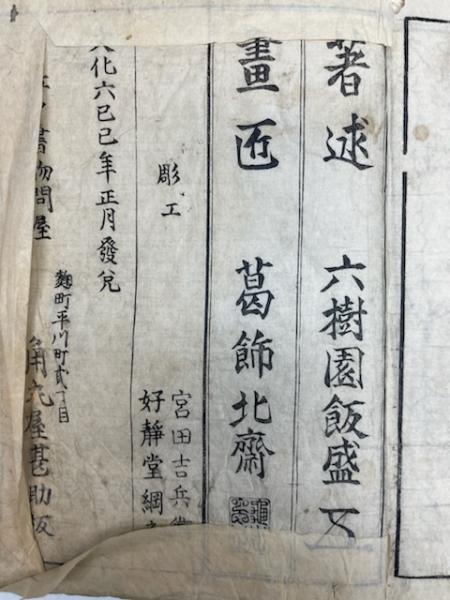 著述 六樹園飯盛
畫匠 葛飾北齋
彫工
宮田吉兵衛
好靜堂綱
化六己巳年正月發兌
書物問屋
麹町平川町貳丁目
角丸屋甚助版